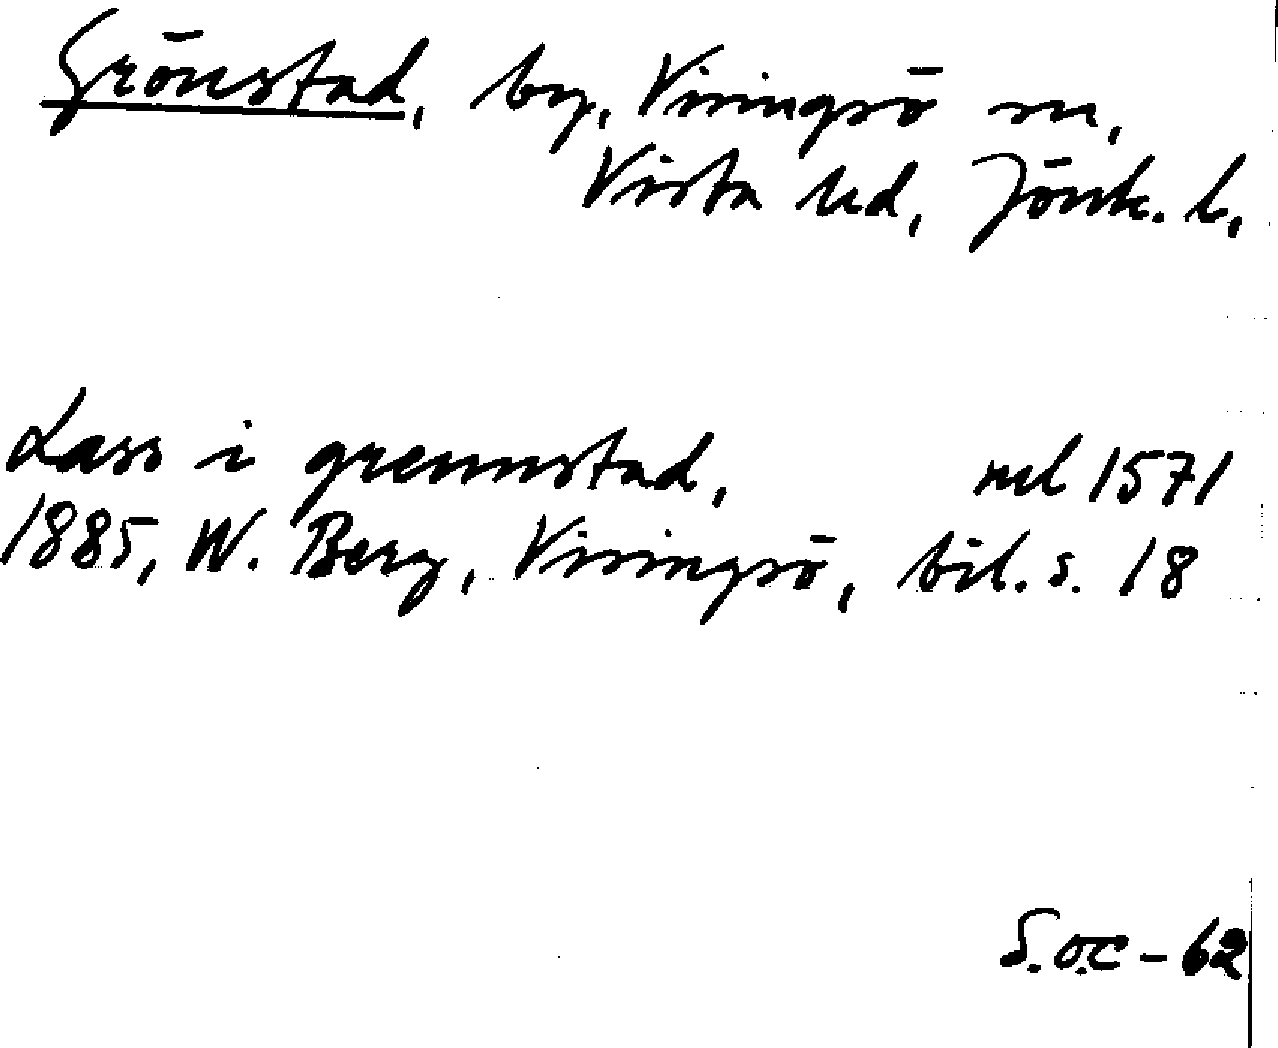 Grönstad, by, Visingsö sn,
Vista hd, Jönk. l.
Lass i grennstad, ml 1571
1885, W. Berg, Visingsö, bil. s. 18
S.O.C - 62